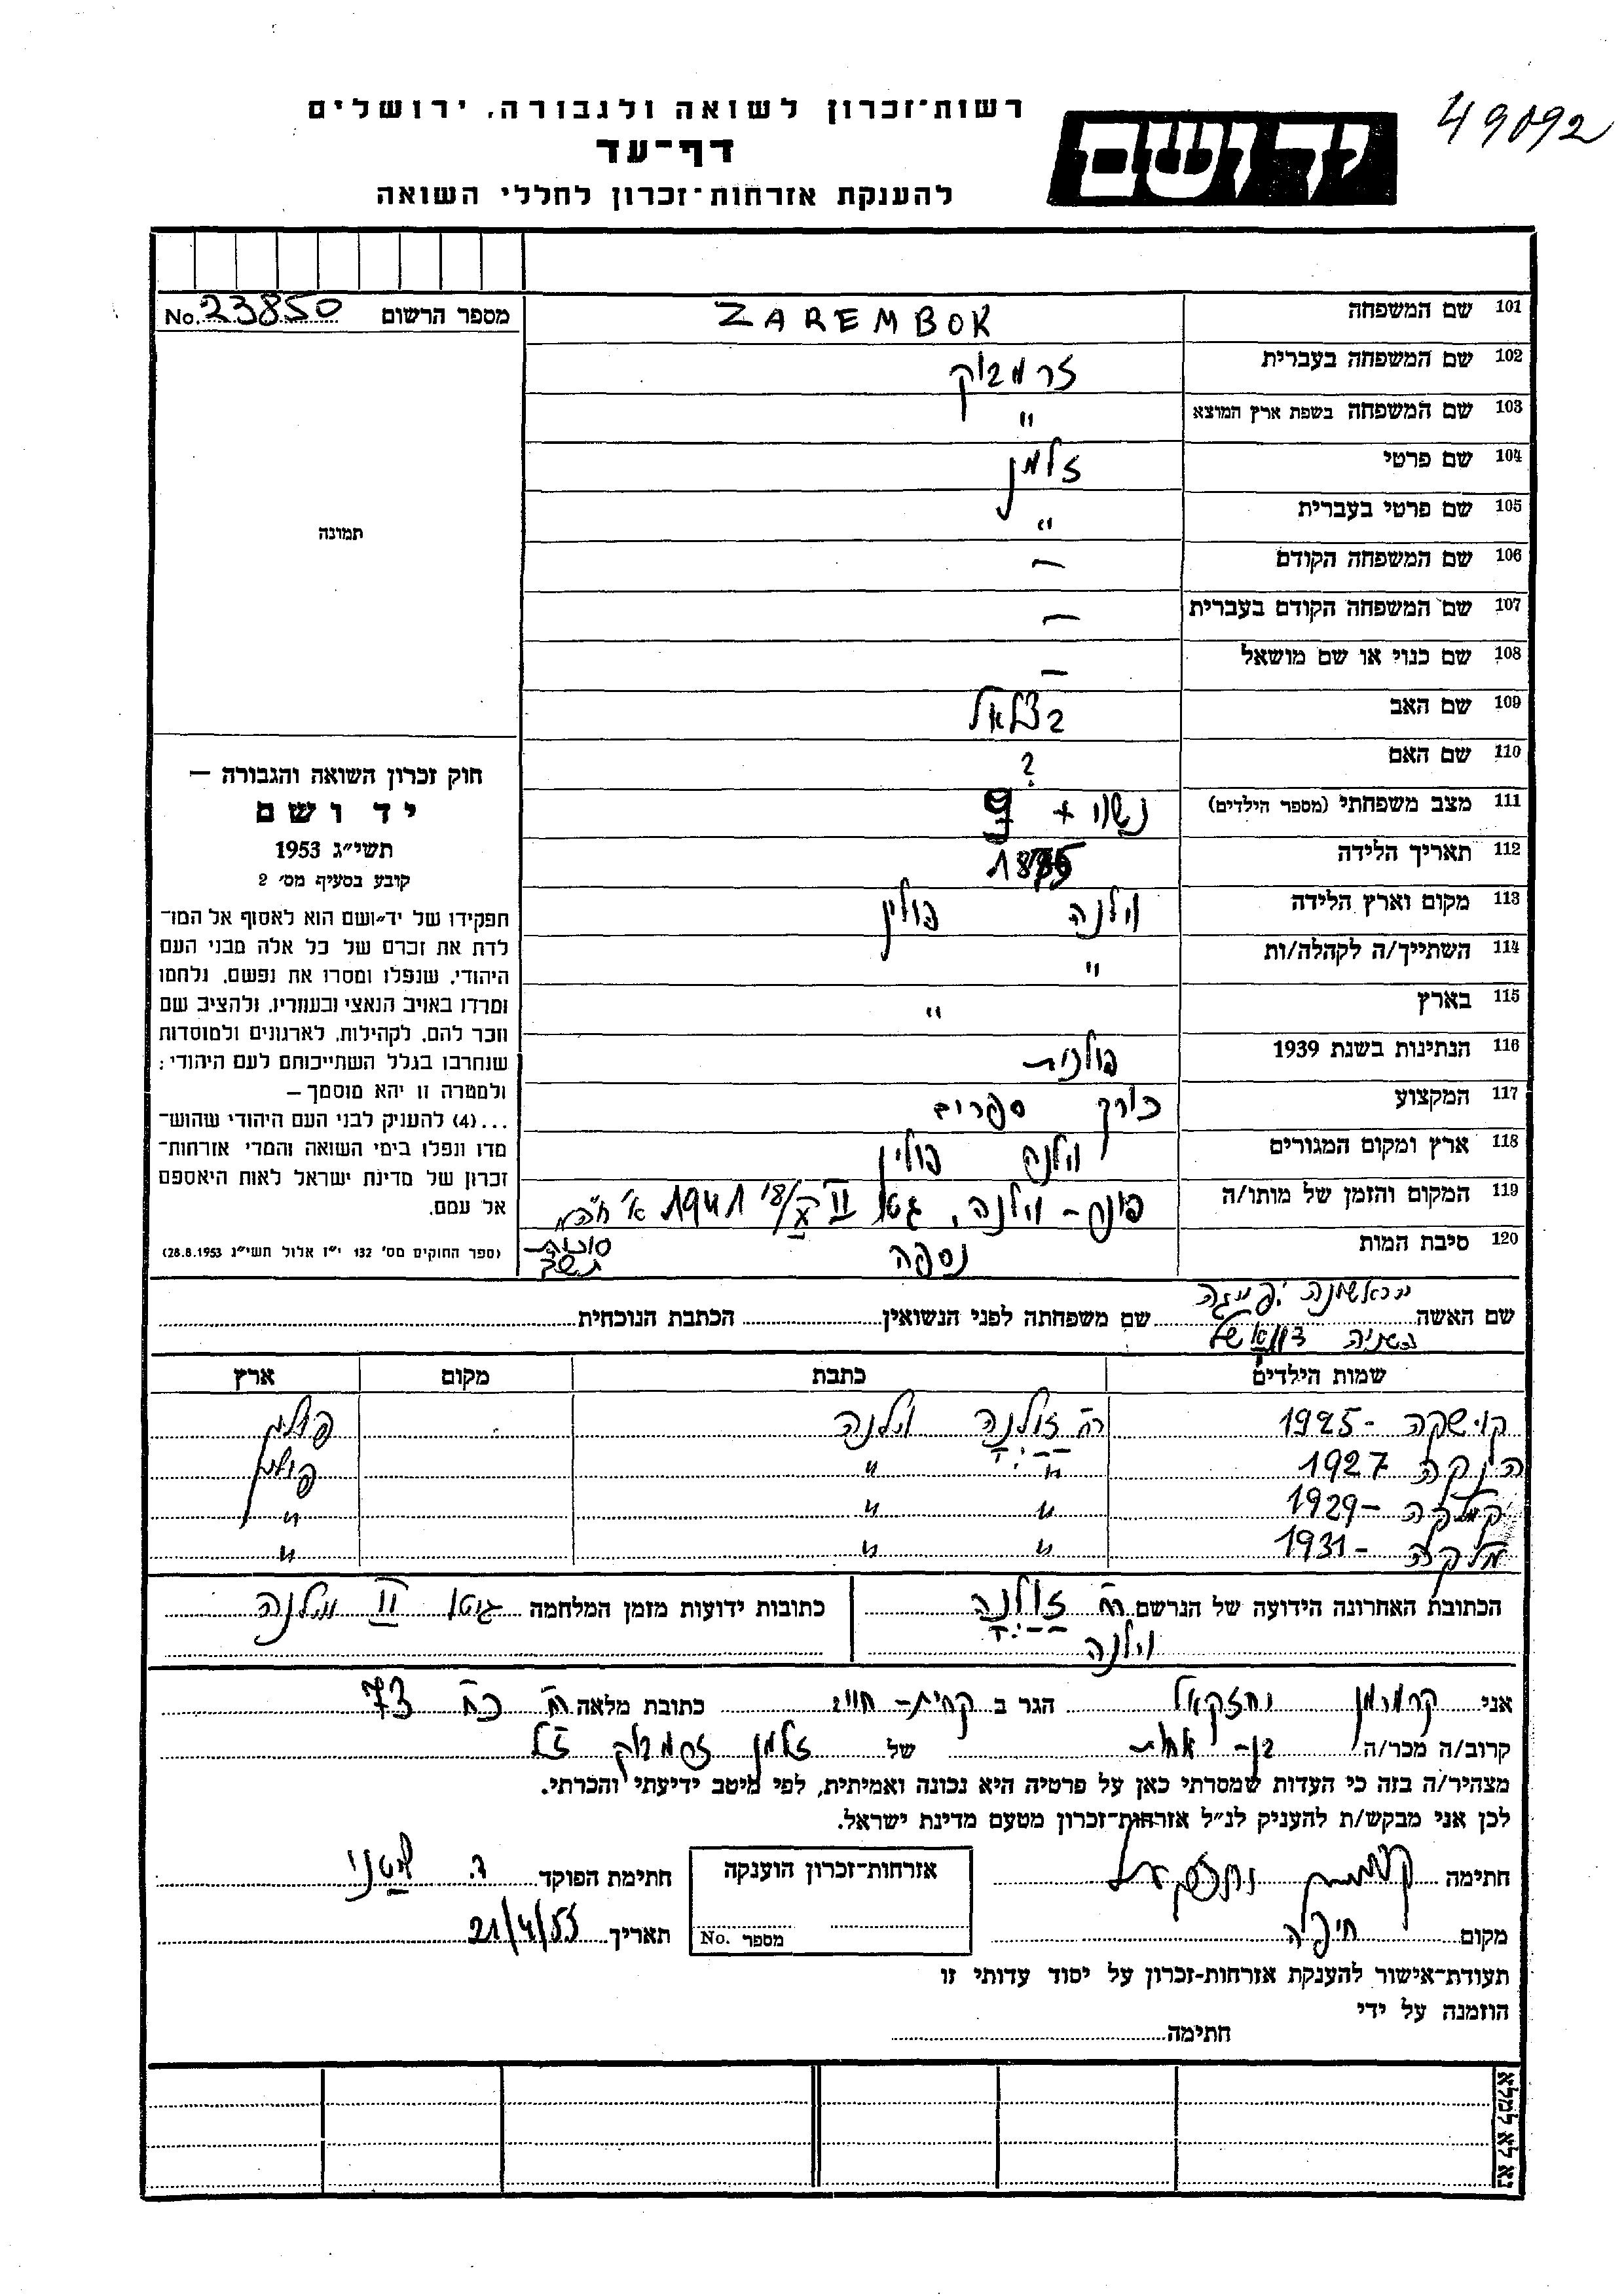 49092
רשות־זכרון לשואה ולגבורה, ירושלים
דף־עד
להענקת אזרחות־זכרון לחללי השואה
ידושם
מספר הרשום No. 23850
101 שם המשפחה ZAREMBOK
102 שם המשפחה בעברית זרמבוק
103 שם המשפחה בשפת ארץ המוצא "
104 שם פרטי זלמן
105 שם פרטי בעברית "
106 שם המשפחה הקודם —
107 שם המשפחה הקודם בעברית —
108 שם כנוי או שם מושאל —
109 שם האב בצלאל
110 שם האם ?
111 מצב משפחתי (מספר הילדים) נשוי +
112 תאריך הלידה
113 מקום וארץ הלידה וילנה פולין
114 השתייך/ה לקהלה/ות "
115 בארץ "
116 הנתינות בשנת 1939 פולנית
117 המקצוע כורך ספרים
118 ארץ ומקום המגורים וילנה פולין
119 המקום והזמן של מותו/ה פונר - וילנה, גטו II 18/X 1941 א' חוה"מ
סוכות
120 סיבת המות נספה
תמונה
חוק זכרון השואה והגבורה —
יד ושם
תשי״ג 1953
קובע בסעיף מס׳ 2
תפקידו של יד־ושם הוא לאסוף אל המו־
לדת את זכרם של כל אלה מבני העם
היהודי, שנפלו ומסרו את נפשם, נלחמו
ומרדו באויב הנאצי ובעוזריו, ולהציב שם
וזכר להם, לקהילות, לארגונים ולמוסדות
שנחרבו בגלל השתייכותם לעם היהודי;
ולמטרה זו יהא מוסמך —
...(4) להעניק לבני העם היהודי שהוש־
מדו ונפלו בימי השואה והמרי אזרחות־
זכרון של מדינת ישראל לאות היאספם
אל עמם.
(ספר החוקים מס׳ 132 י״ז אלול תשי״ג 28.8.1953)
שם האשה שם משפחתה לפני הנשואין הכתבת הנוכחית
שמות הילדים כתבת מקום ארץ
1925 - רח' וילנה פולין
1927 " " פולין
1929 - " " "
מלקה 1931 - " " "
הכתובת האחרונה הידועה של הנרשם רח'
וילנה
כתובות ידועות מזמן המלחמה גיטו II וילנה
אני קרמרמן יחזקאל הגר ב קרית - חיים כתובת מלאה רח' כח' 73
קרוב/ה מכר/ה בן - אחות של זלמן זרמבוק ז"ל
מצהיר/ה בזה כי העדות שמסרתי כאן על פרטיה היא נכונה ואמיתית, לפי מיטב ידיעתי והכרתי.
לכן אני מבקש/ת להעניק לנ״ל אזרחות־זכרון מטעם מדינת ישראל.
חתימה יחזקאל
אזרחות־זכרון הוענקה
מספר No.
חתימת הפוקד
מקום חיפה
תאריך 21/4/55
תעודת־אישור להענקת אזרחות־זכרון על יסוד עדותי זו
הוזמנה על ידי
חתימה
נא לא למלא